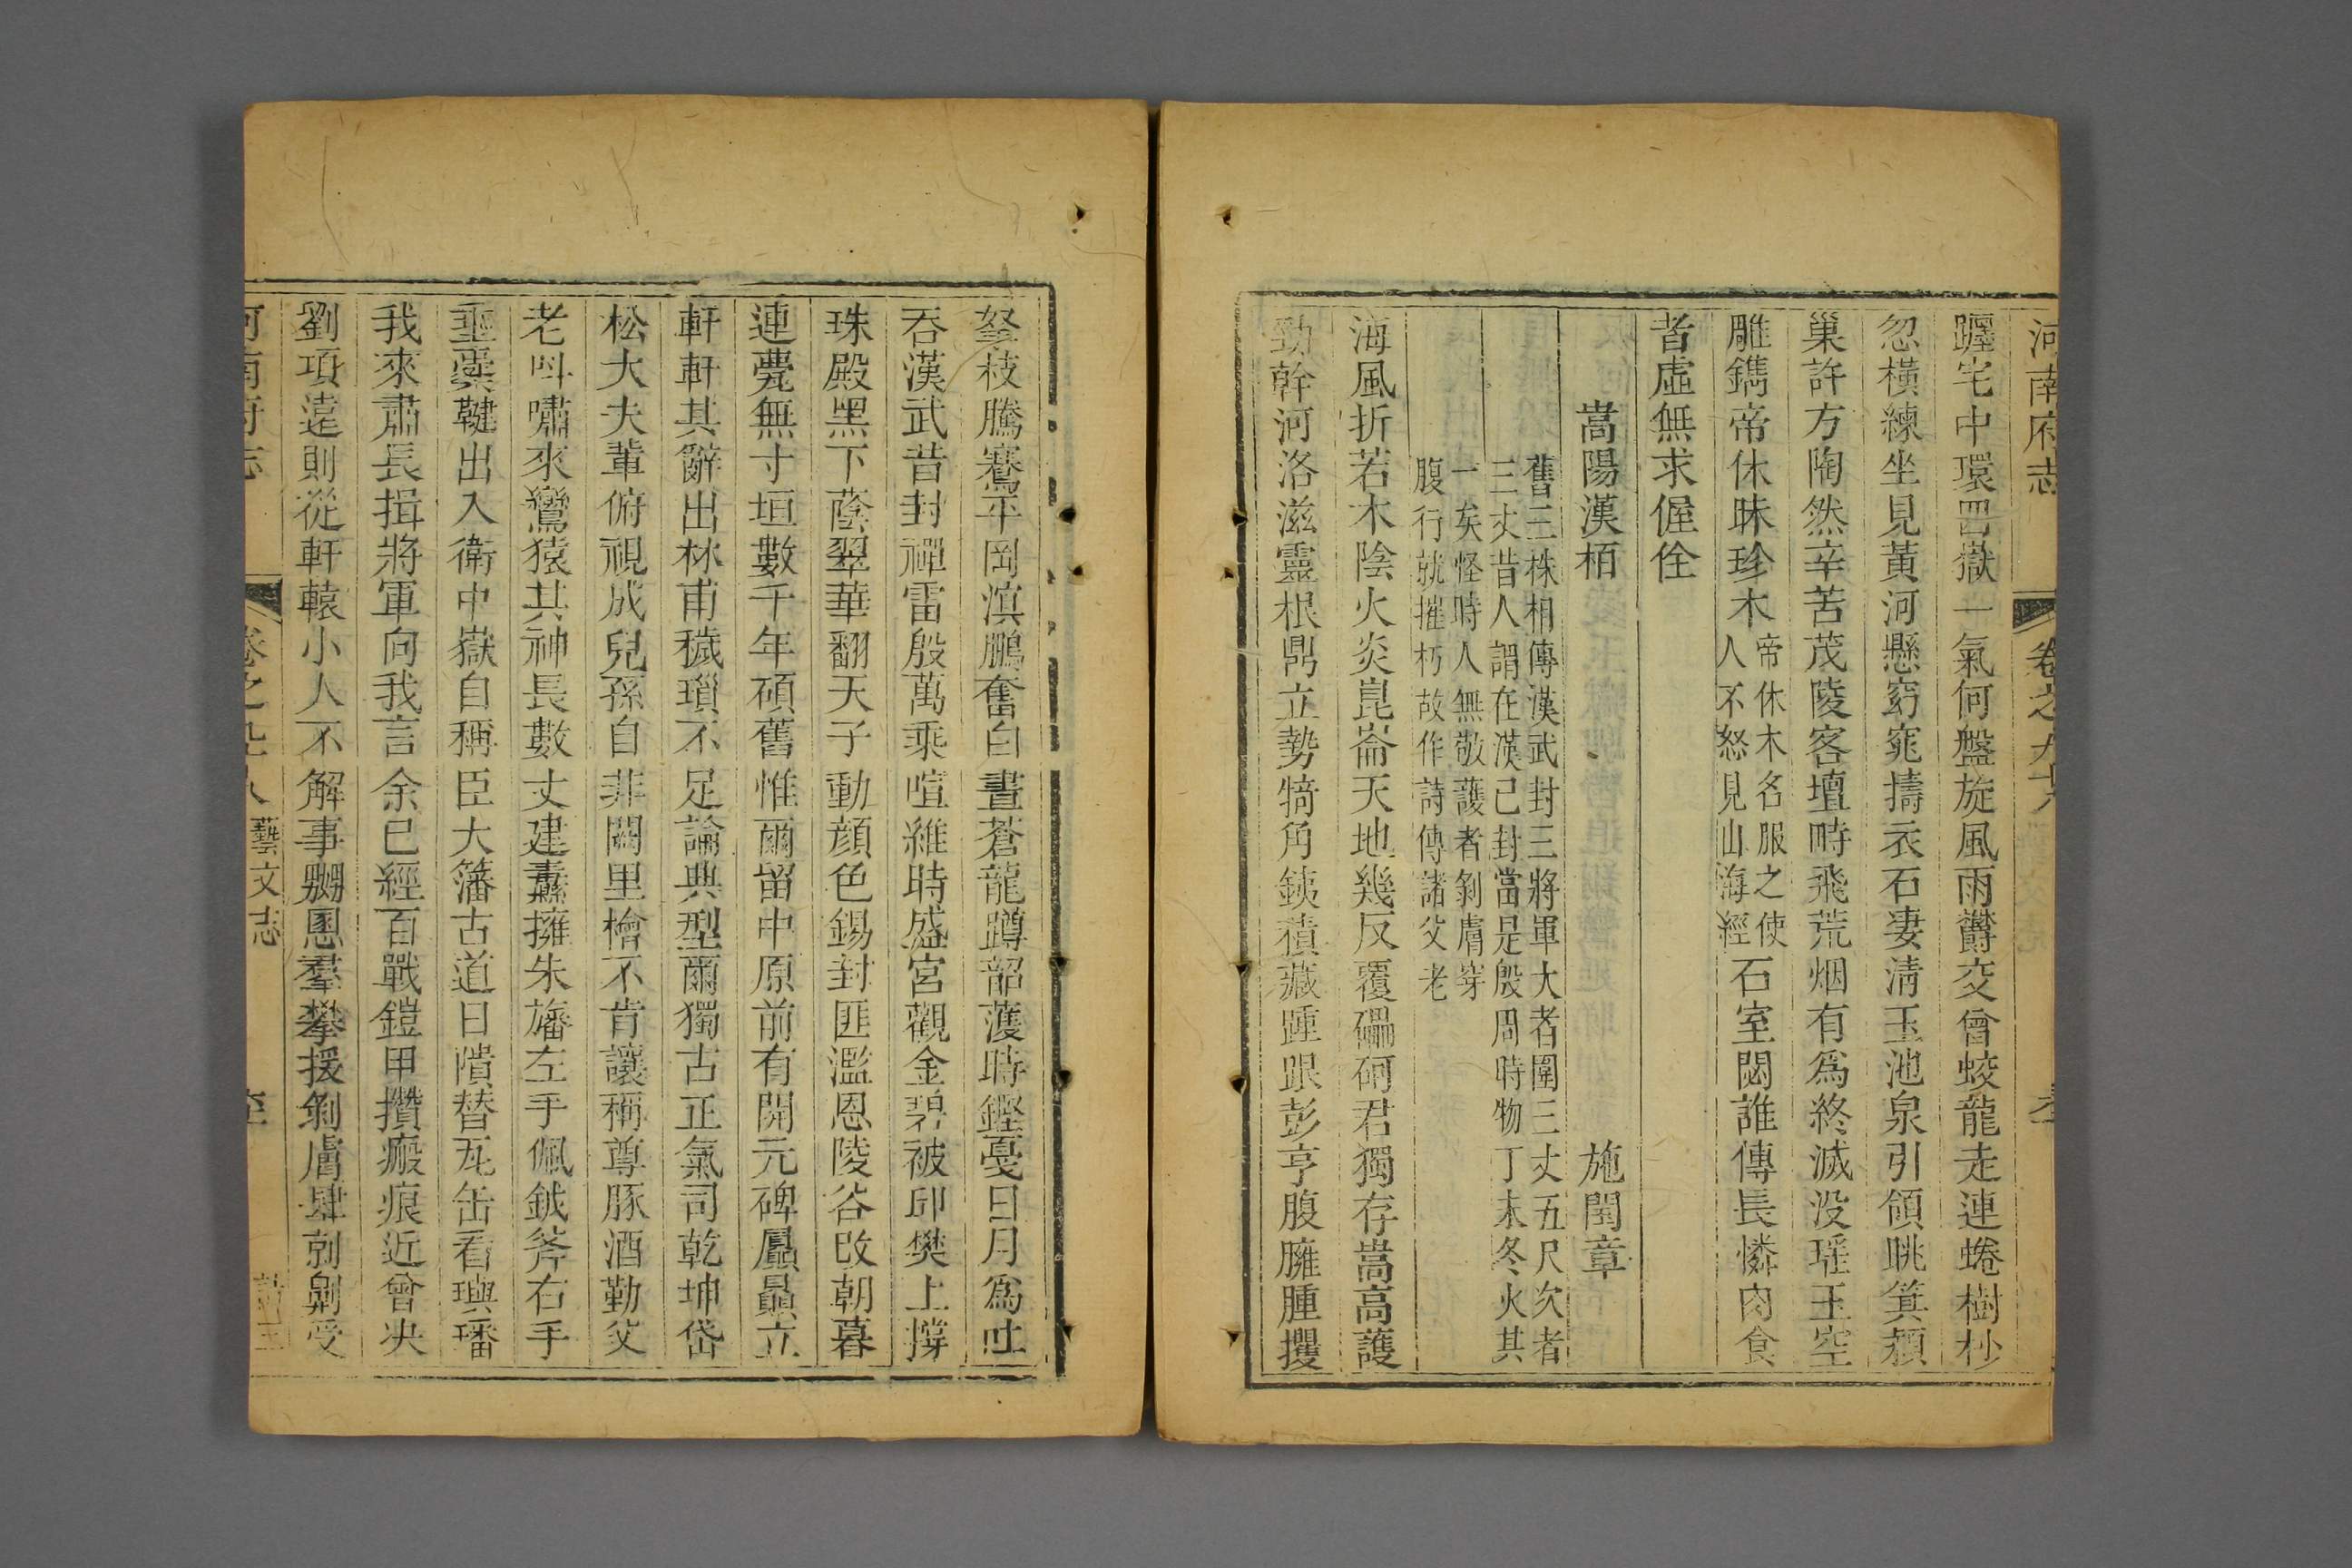 河南府志 卷之九十八
躔宅中環四嶽一氣何盤旋風雨鬱交會蛟龍走連蜷樹杪
忽橫練坐見黃河懸窈窕擣衣石凄清玉池泉引領眺箕潁
巢許方陶然辛苦茂陵客壇畤飛荒烟有爲終滅没瑤玉空
雕鐫帝休昧珍木帝休木名服之使人不怒見山海經石室閟誰傳長憐肉食
者虛無求偓佺
嵩陽漢栢 施閏章
舊三株相傳漢武封三將軍大者圍三丈五尺次者
三丈昔人謂在漢已封當是殷周時物丁未冬火其
一矣怪時人無敬護者剝膚穿
腹行就摧朽故作詩傳諸父老
海風折若木陰火炎崑崙天地幾反覆礧砢君獨存嵩高護
勁幹河洛滋靈根鼎立勢犄角鋏積藏踵跟彭亨腹臃腫攫
拏枝騰騫平岡滇鵬奮白晝蒼龍蹲韶頀時鏗戛日月爲吐
吞漢武昔封禪雷殷萬乘喧維時盛宮觀金碧被邱樊上撐
珠殿黑下蔭翠華翻天子動顔色錫封匪濫恩陵谷改朝暮
連甍無寸垣數千年碩舊惟爾留中原前有開元碑屭贔立
軒軒其辭出林甫穢瑣不足論典型爾獨古正氣司乾坤岱
松大夫輩俯視成兒孫自非闕里檜不肯讓稱尊豚酒勤父
老叫嘯來鸞猿其神長數丈建纛擁朱旛左手佩鉞斧右手
垂櫜鞬出入衛中嶽自稱臣大籓古道日隤替瓦缶看璵璠
我來肅長揖將軍向我言余已經百戰鎧甲攢瘢痕近曾决
劉項遠則從軒轅小人不解事嬲慁羣攀援剝膚肆刲劓受
河南府志 卷之九十八 藝文志